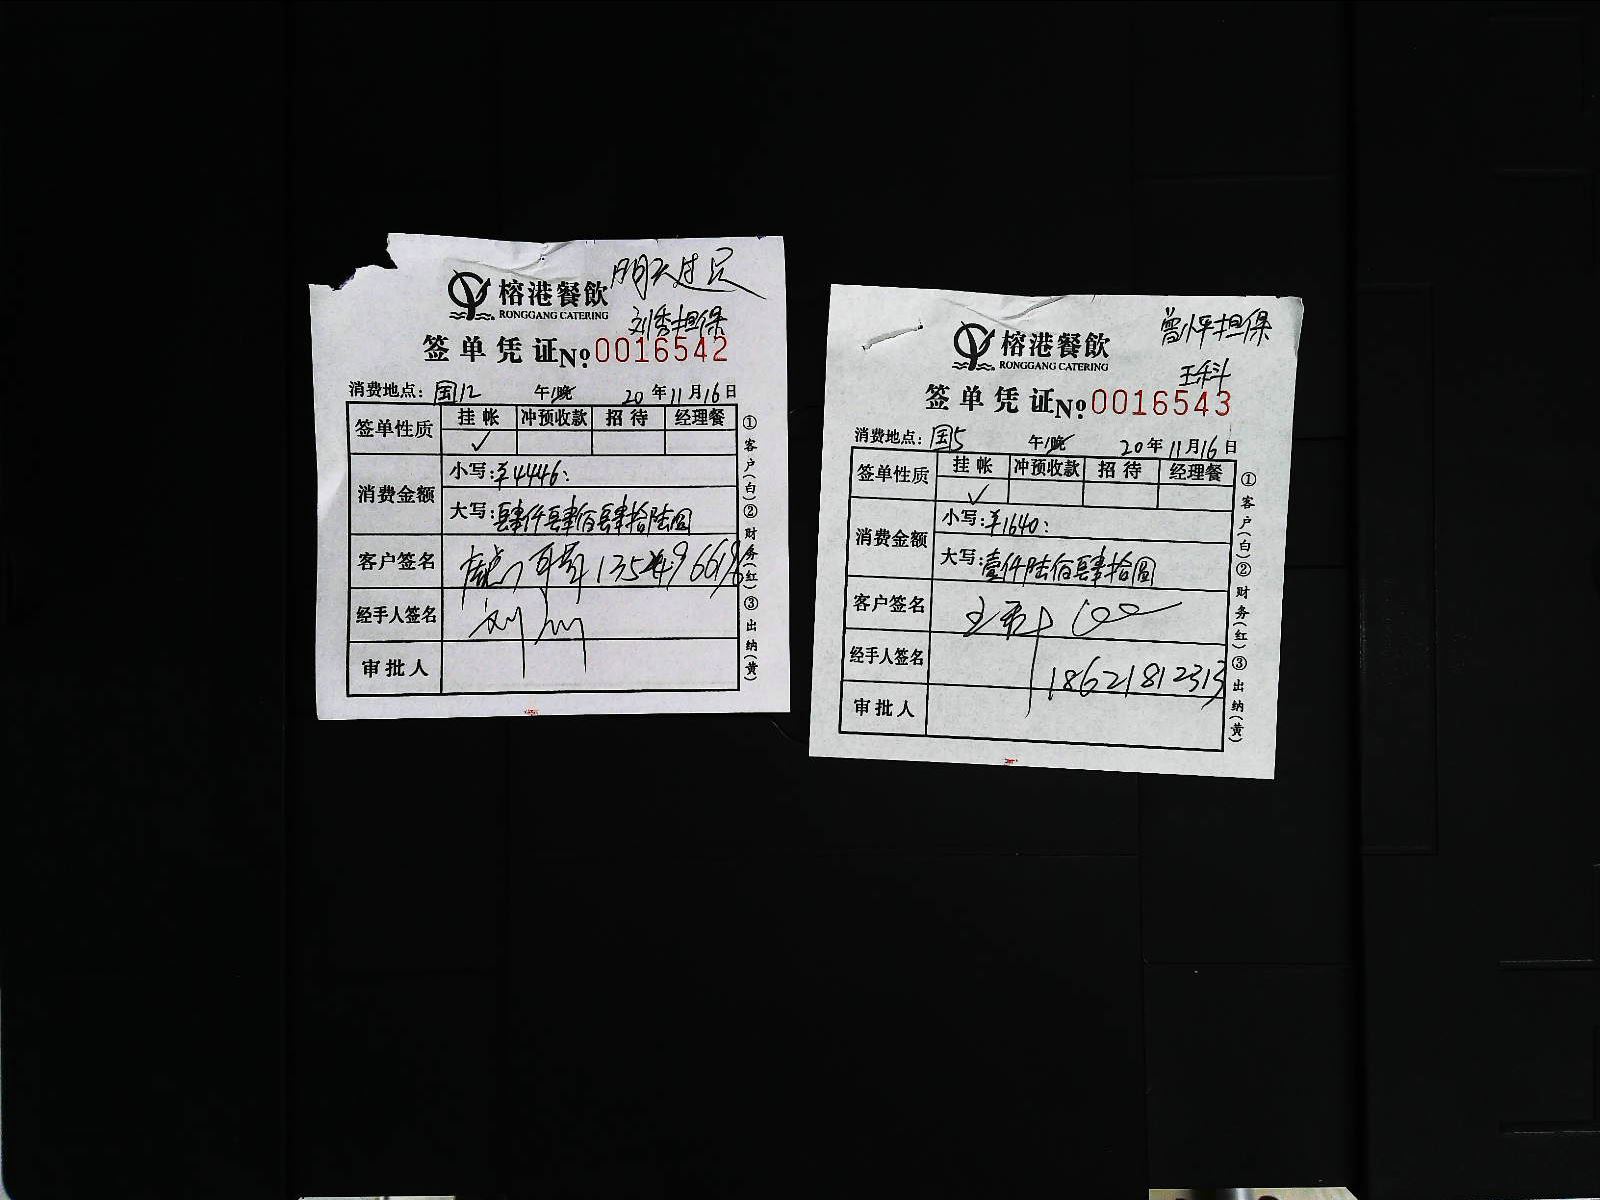 榕港餐飲
RONGGANG CATERING
刘秀担保
签单凭证 No 0016542
消费地点：国12 午/晚 20年11月16日
签单性质 挂帐 冲预收款 招待 经理餐
✓
消费金额 小写：¥4446：
大写：肆仟肆佰肆拾陆圆
客户签名
经手人签名 刘
审批人
①客户（白）②财务（红）③出纳（黄）
曾怀担保
榕港餐飲
RONGGANG CATERING
王科
签单凭证 No 0016543
消费地点：国5 午/晚 20年11月16日
签单性质 挂帐 冲预收款 招待 经理餐
✓
消费金额 小写：¥1640：
大写：壹仟陆佰肆拾圆
客户签名
经手人签名 18621812313
审批人
①客户（白）②财务（红）③出纳（黄）